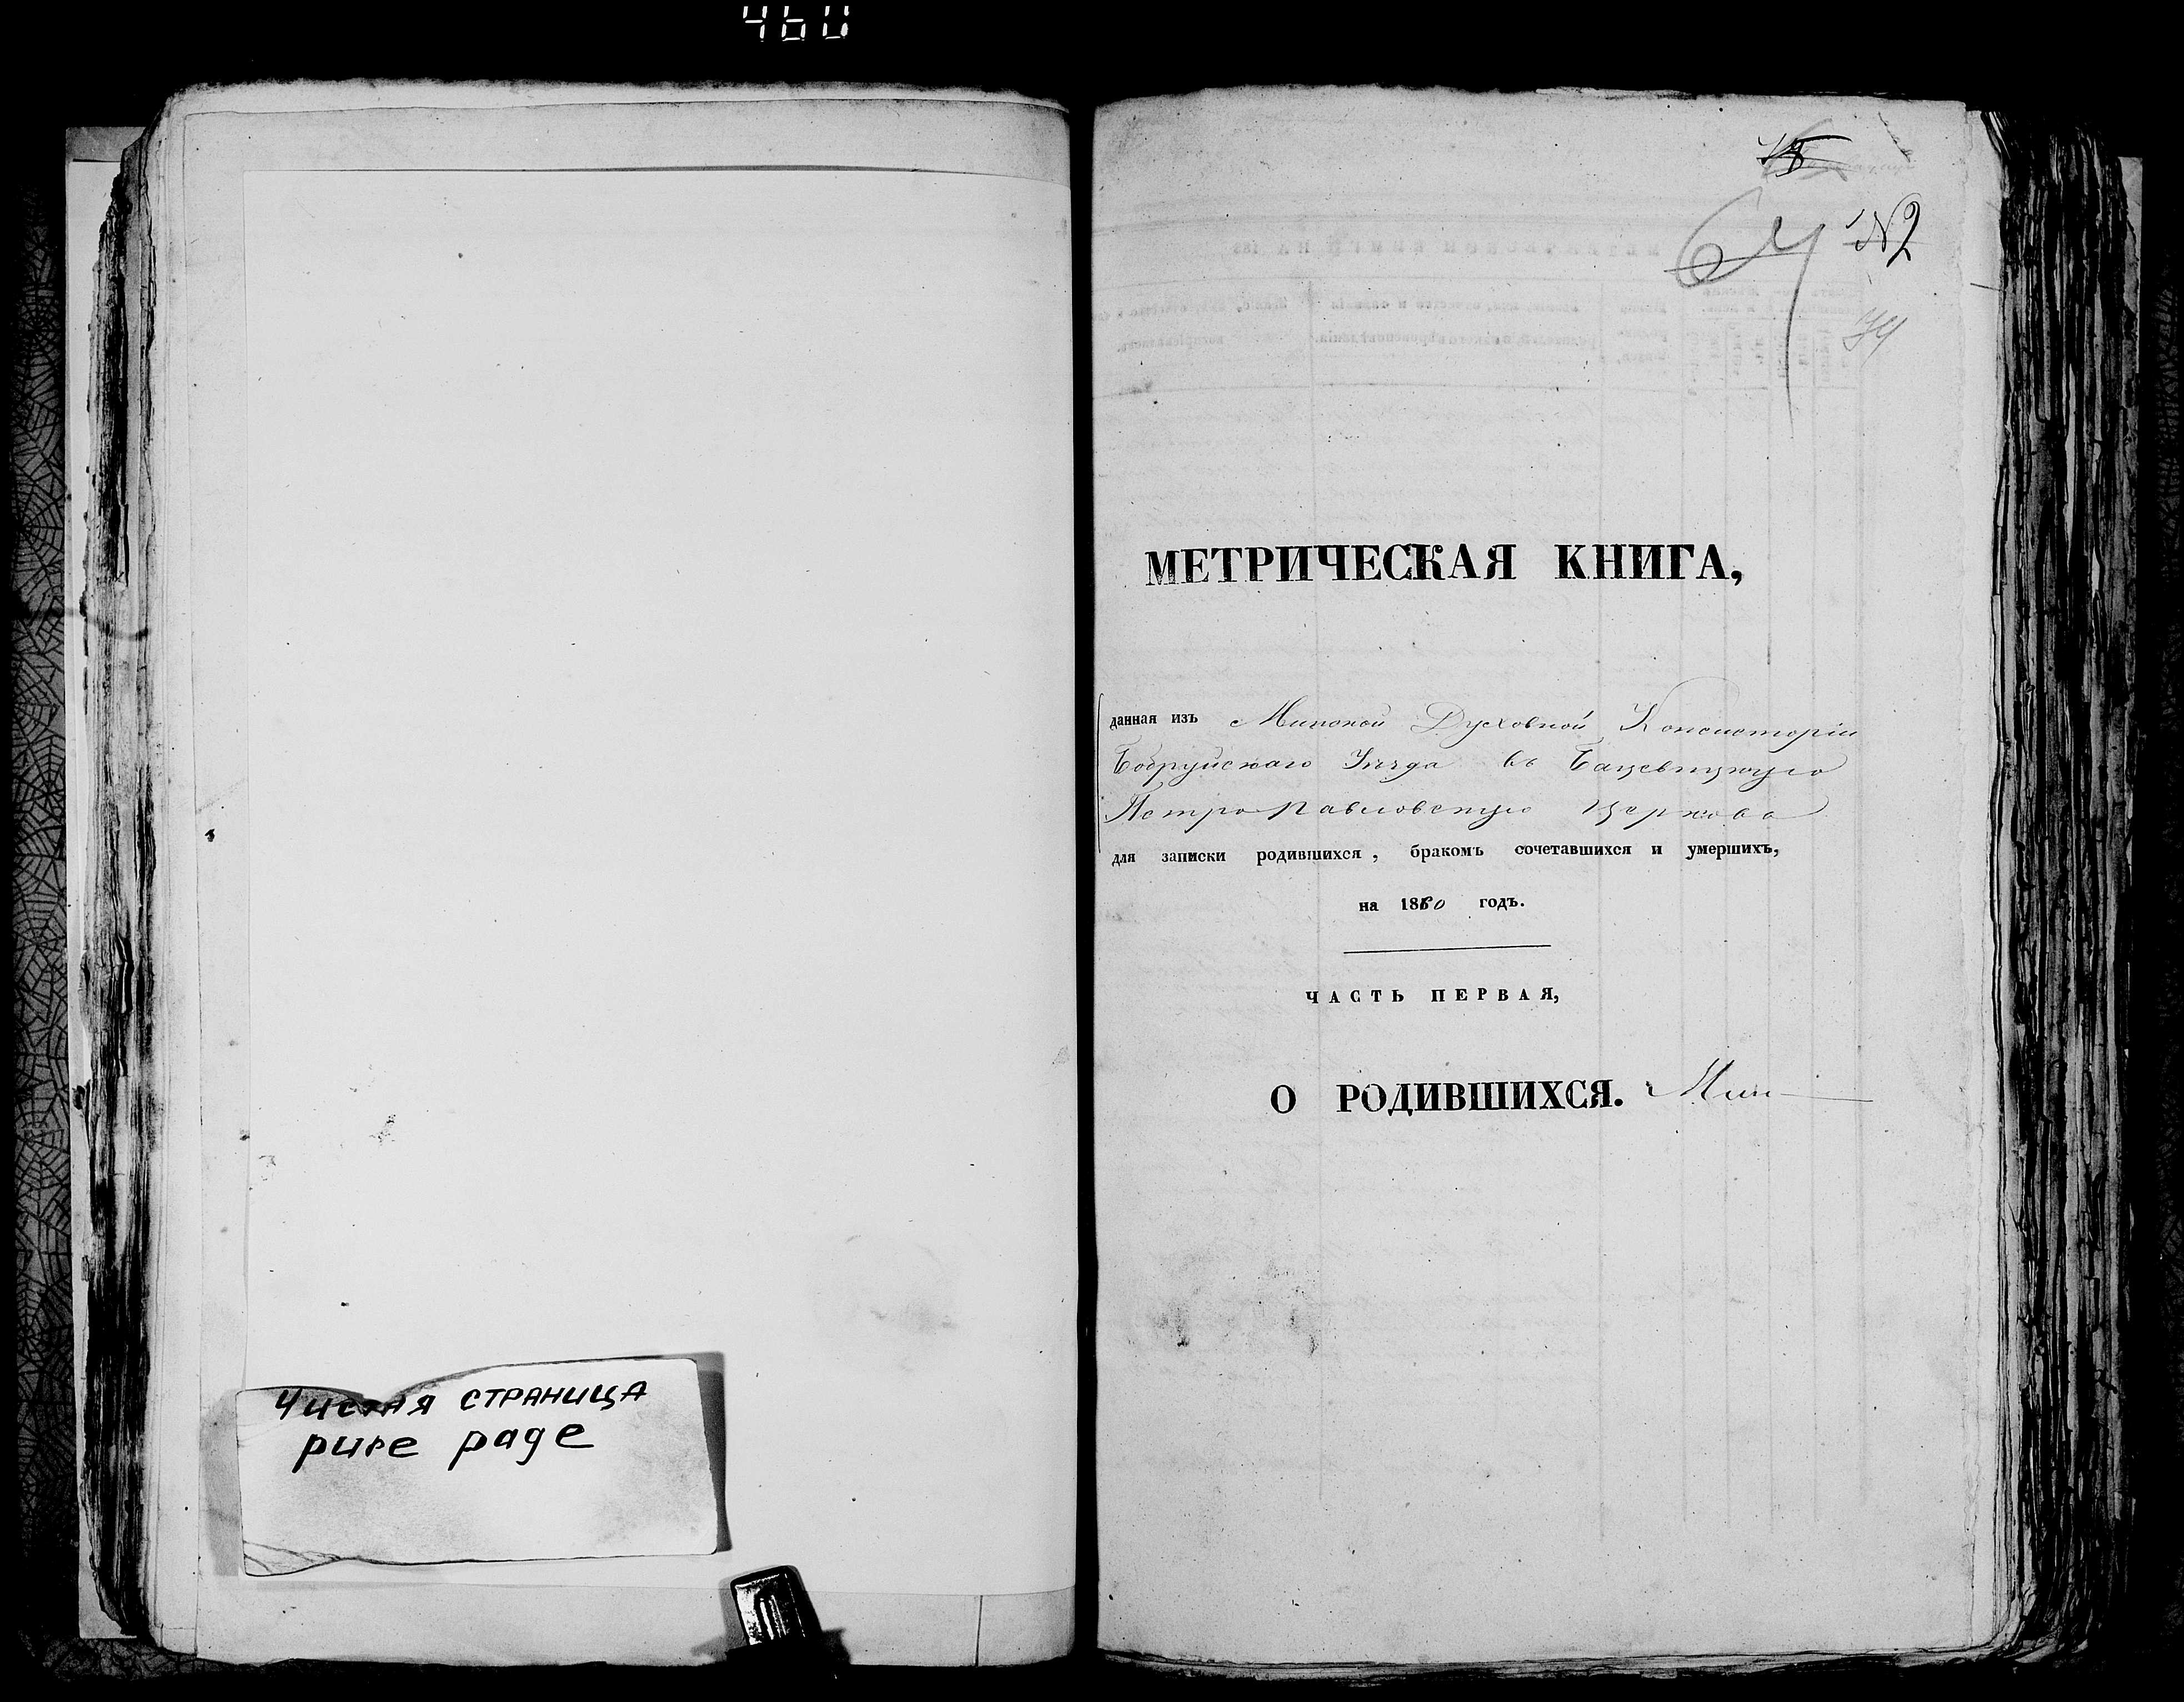 460
Чистая страница
pure page
64
№2
МЕТРИЧЕСКАЯ КНИГА,
данная изъ Минской Духовной Консисторіи
Бобруйскаго Уѣзда въ Бацевицкую
Петропавловскую церковь
для записки родившихся, бракомъ сочетавшихся и умершихъ,
на 1860 годъ.
ЧАСТЬ ПЕРВАЯ,
О РОДИВШИХСЯ.